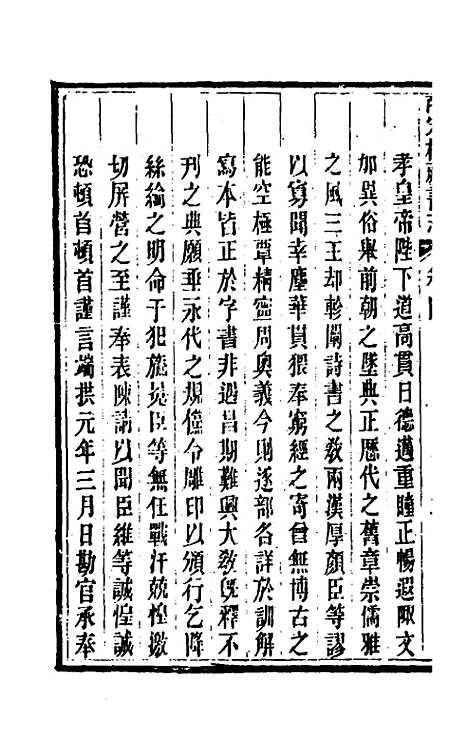 孝皇帝陛下道高貫日德邁重瞳正暢遐陬文
加異俗舉前朝之墜典正歷代之舊章崇儒雅
之風三王却軫闡詩書之敎兩漢厚顏臣等謬
以寡聞幸塵華貫猥奉窮經之寄曾無博古之
能空極覃精寧周奧義今則逐部各詳於訓解
寫本皆正於字書非遇昌期難興大敎旣釋不
刋之典願垂永代之規儻令雕印以頒行乞降
絲綸之明命干犯旒扆臣等無任戰汗兢惶激
切屏營之至謹奉表陳請以聞臣維等誠惶誠
恐頓首頓首謹言端拱元年三月日勘官承奉